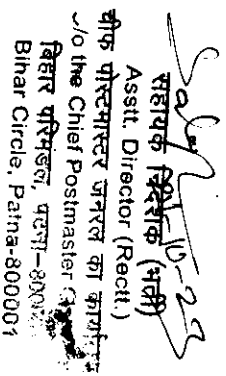 सहायक निदेशक (भर्ती)
Asstt. Director (Rectt.)
चीफ पोस्टमास्टर जनरल का
O/o the Chief Postmaster
बिहार परिमंडल, पटना-8000
Bihar Circle, Patna-800001